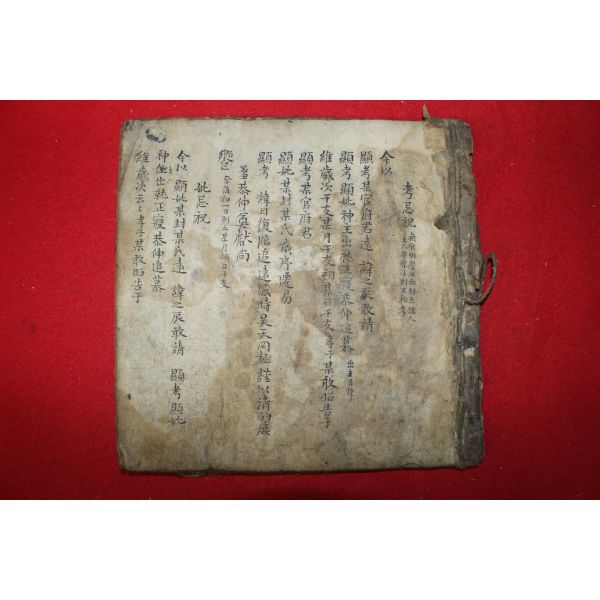 考忌祝
今以
顯考某官府君遠 諱之辰敢請
顯考顯妣神主出就正寢恭伸追慕
維歲次干支某月干支朔某日干支孝子某敢昭告于
顯考某官府君
顯妣某封某氏歲序遷易
顯考 諱日復臨追遠感時昊天罔極謹以清酌庶
羞恭伸奠獻尚
饗
妣忌祝
今以 顯妣某封某氏遠 諱之辰敢請 顯考顯妣
神位出就正寢恭伸追慕
維歲次云云孝子某敢昭告于